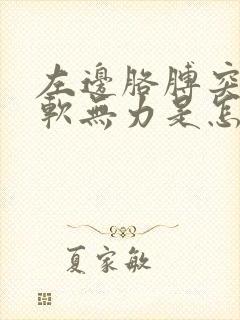 左邊胳膊突
軟無力是怎
夏家敏